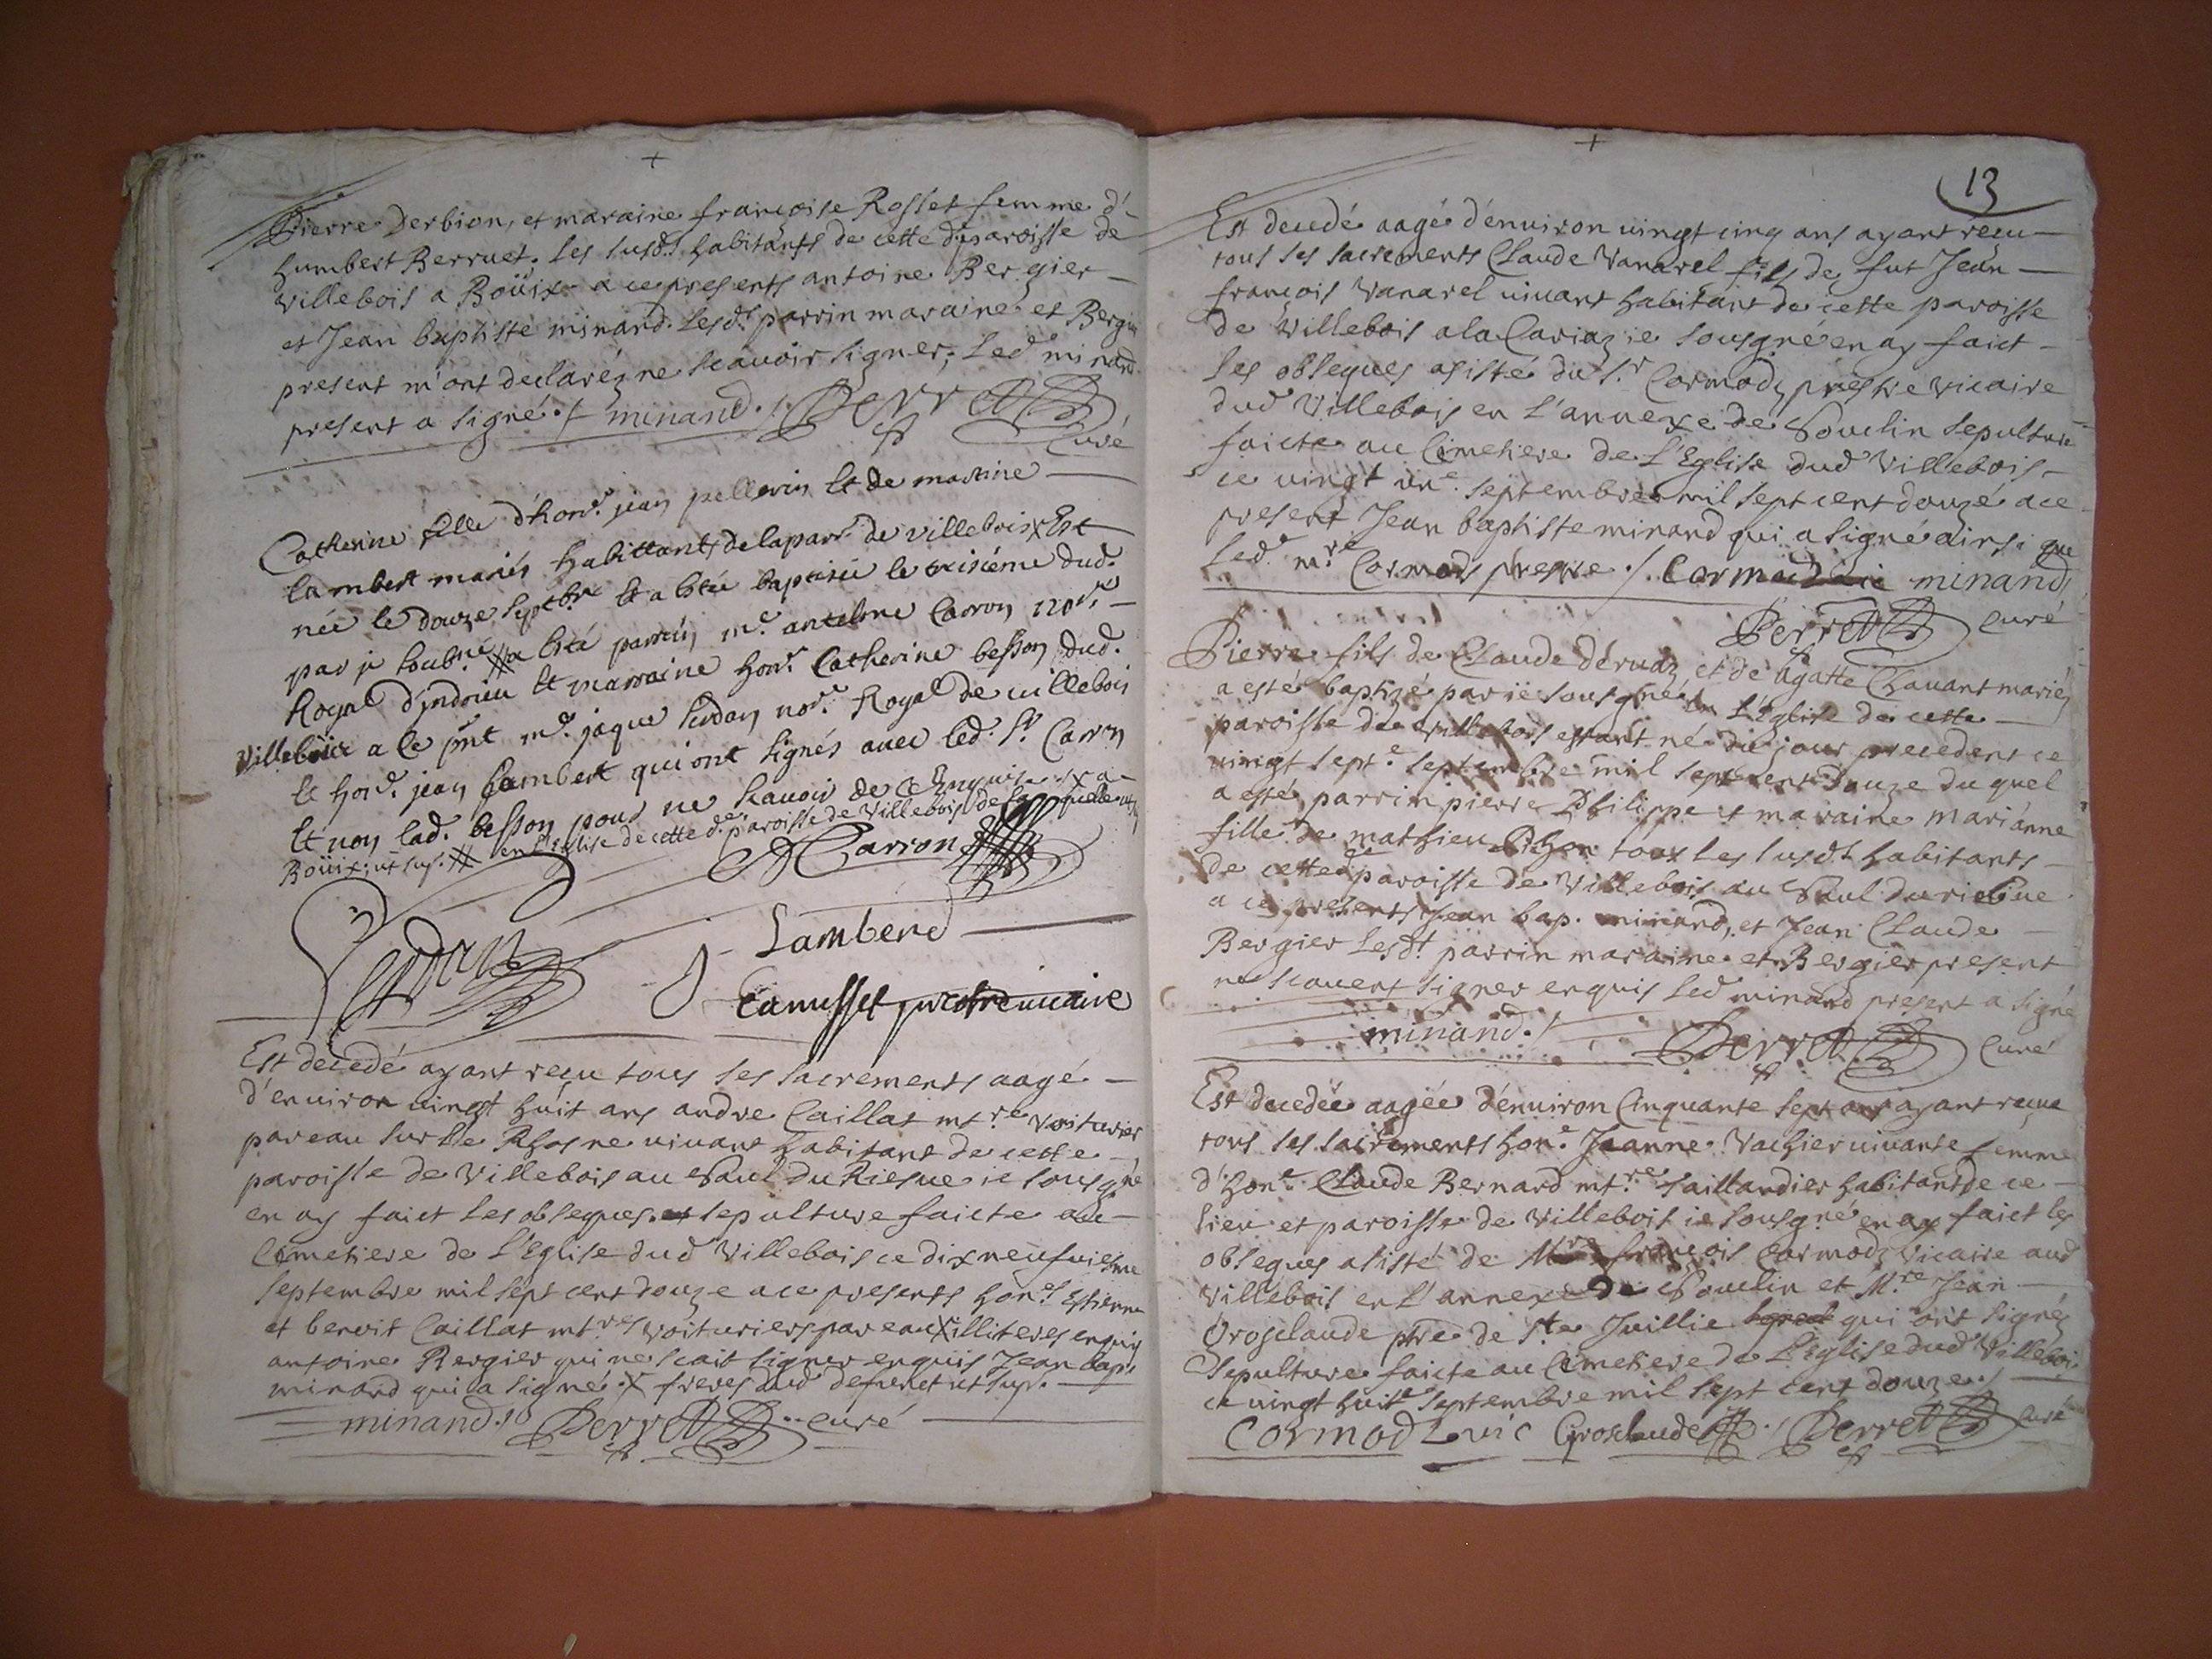 Pierre Derbion, et maraine françoise Rosset femme d'
humbert Berruet. Les susd.ts habitants de cette d.e paroisse de
Villebois a Boüix a ce presents antoine Bergier
et Jean baptiste minand. Lesd.ts parrin maraine et Bergier
present m'ont declaréz ne scauoir signer, Led.t minand
present a signé ./. minand ./. Perret
Curé
Catherine fille d'hon.e jean pellerin et de martine
Lambert mariés habittants de la par.se de villebois x Est
née le douze sept.bre et a esté baptisée le treisiéme dud.
par je soub.né # a esté parrin m.e antelme Carron no.re
Royal d'jndrieu et marraine hon.e Catherine besson dud.
villebois a ce pnt m.e jaque Sirdan no.re Royal de villebois
et hon.e jean Lambert qui ont signés auec led. S.r Carron
et non lad. besson pour ne scauoir de ce enquise x a
Boüix, ut sup. # en l'Eglise de cette d.e paroisse de Villebois de laquelle
A Carron
Sirdan
J Lamberd
Camusset prestre uicaire
Est decedé ayant reçu tous ses sacrements aagé
d'enuiron uingt huit ans andre Caillat mt.re voiturier
par eau sur le Rhosne uiuant habitant de cette
paroisse de Villebois au Saul du Riesue ie sousg.né
en ay faict les obseques. et sepulture faicte au
Cimetiere de L'Eglise dud Villebois ce dixneufuiesme
Septembre mil sept cent douze a ce presents hon.es Estienne
et benoit Caillat mt.res voituriers par eau x illiteres enquis
antoine Bergier qui ne scait signer enquis Jean bapt
minand qui a signé. x freres dud defunct ut sup.
minand ./. Perret curé
13
Est decedé aagé d'enuiron uingt cinq ans ayant recu
tous ses sacrements Claude Vanarel fils de fut Jean
françois Vanarel uiuant habitant de cette paroisse
de Villebois a la Cariazie sousgné en ay faict
les obseques asisté du S.r Cormodz prestre vicaire
dud Villebois en L'annexe de Soucl̃in sepulture
faicte au Cimetiere de L'Eglise dud Villebois
ce uingt un.e septembre mil sept cent douze a ce
present Jean baptiste minand qui a signé ainsi que
Led.t m.re Cormodz prestre ./. Cormodz uic minand
Perret curé
Pierre fils de Claude Déruaz et de Agatte Chauant mariéz
a esté baptizé par ie sousgné en L'Eglise de cette
paroisse de Villebois estant né du jour precedent ce
uingt sept.e septembre mil sept cent douze du quel
a esté parrin pierre Philippe et maraine marianne
fille de mathieu Pichon tous les susd.ts habitants
de cette d.e paroisse de Villebois au Saul du riesue
a ce presents Jean bap. minand, et Jean Claude
Bergier Lesd.t parrin maraine et Bergier present
ne scauent signer enquis Led minand present a signé
minand ./. Perret Curé
Est decedée aagée d'enuiron Cinquante sept ans ayant reçue
tous ses sacrements hon.e Jeanne Vachier uiuante femme
d'hon.e Claude Bernard mt.re taillandier habitant de ce
lieu et paroisse de Villebois ie sousgné en ay faict les
obseques asisté de M.re françois Cormodz Vicaire aud
Villebois en L'annexe de Souclin et M.re Jean
Grosclaude ptre de S.te Juillie qui ont signéz
Sepulture faicte au Cimetiere de L'Eglise dud Villebois
ce uingt huit.e septembre mil sept cent douze ./.
Cormodz uic Grosclaude ./. Perret Curé